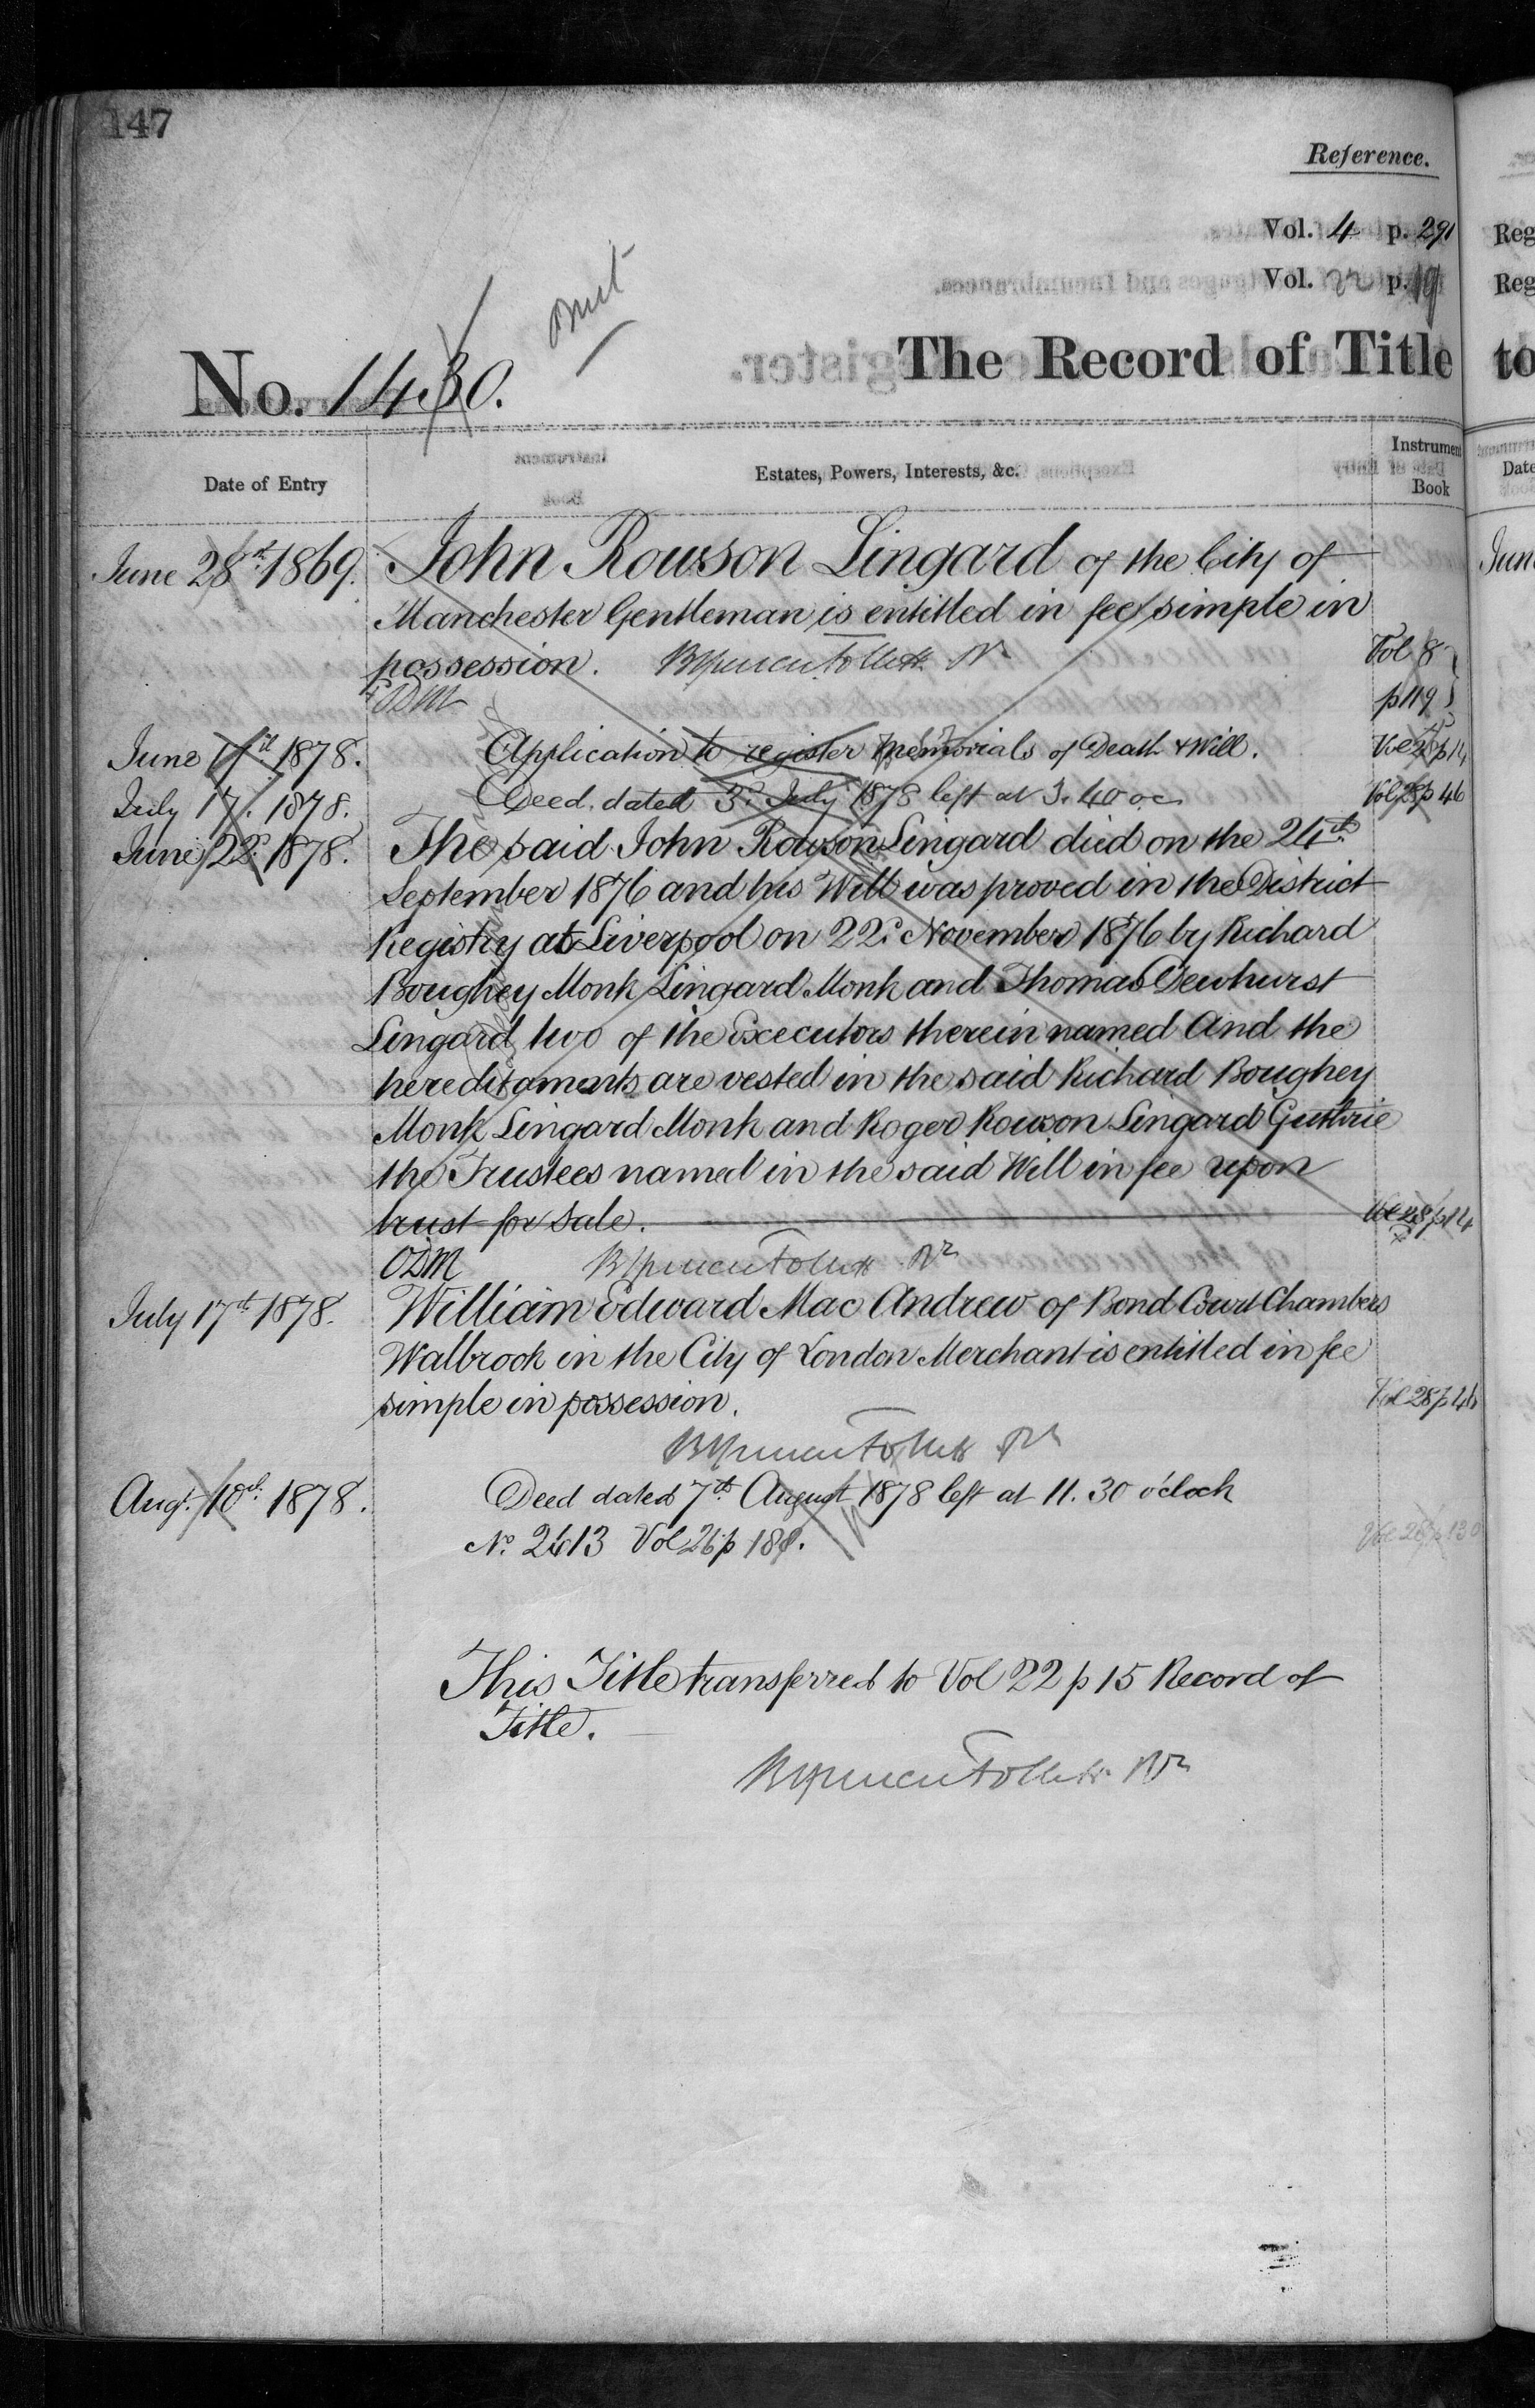 147
Reference.
Vol. 4 p. 291
Vol. p. 19
omit
No. 1430.
The Record of Title
Date of Entry
Estates, Powers, Interests, &c.
Instrument
Book
June 28th 1869. John Rowson Lingard of the City of
Manchester Gentleman is entitled in fee simple in
possession.
Vol 8
p 119
ODM
June 17th 1878. Application to register memorials of Death & Will. Vol 28 p 14
July 17. 1878. Deed dated 3d July 1878 left at 3.40 oc Vol 28 p 46
June 22d 1878. The said John Rowson Lingard died on the 24th
September 1876 and his Will was proved in the District
Registry at Liverpool on 22d November 1876 by Richard
Boughey Monk Lingard Monk and Thomas Dewhurst
Lingard two of the Executors therein named And the
hereditaments are vested in the said Richard Boughey
Monk Lingard Monk and Roger Rowson Lingard Guthrie
the Trustees named in the said Will in fee upon
trust for sale. Vol 28 p 14
ODM
July 17th 1878. William Edward Mac Andrew of Bond Court Chambers
Walbrook in the City of London Merchant is entitled in fee
simple in possession. Vol 28 p 46
Augt. 10th 1878. Deed dated 7th August 1878 left at 11.30 o'clock
No. 2413 Vol 26 p 181. Vol 28 p 130
This Title transferred to Vol 22 p 15 Record of
Title.
Reg
Reg
to
Date
June